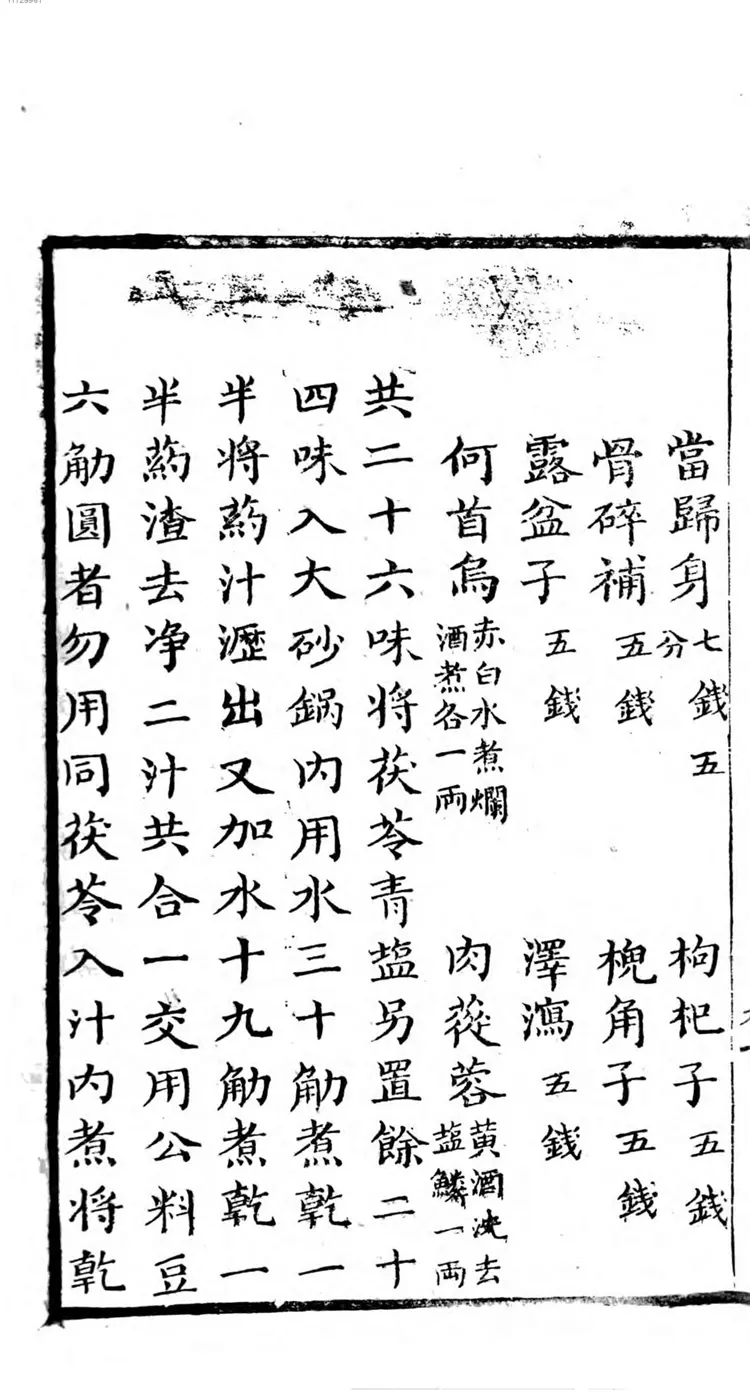 當歸身七錢五分 枸杞子五錢
骨碎補五錢 槐角子五錢
露盆子五錢 澤瀉五錢
何首烏赤白水煮爛酒煮各一兩 肉蓯蓉黄酒洗去塩鱗一兩
共二十六味将茯苓青塩另置餘二十
四味入大砂鍋内用水三十觔煮乾一
半将药汁瀝出又加水十九觔煮乾一
半药渣去净二汁共合一交用公料豆
六觔圓者勿用同茯苓入汁内煮将乾